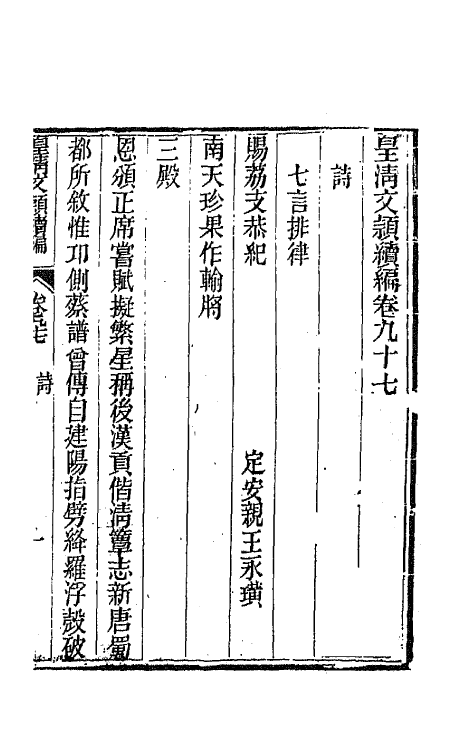 皇淸文頴續編卷九十七
詩
七言排律
賜荔支恭紀　定安親王永璜
南天珍果作輸將
三殿
恩頒正席嘗賦擬繁星稱後漢貢偕淸簟志新唐蜀
都所敘惟邛側蔡譜曾傳自建陽指劈絳羅浮殼破
皇淸文頴續編　卷九十七　詩　一